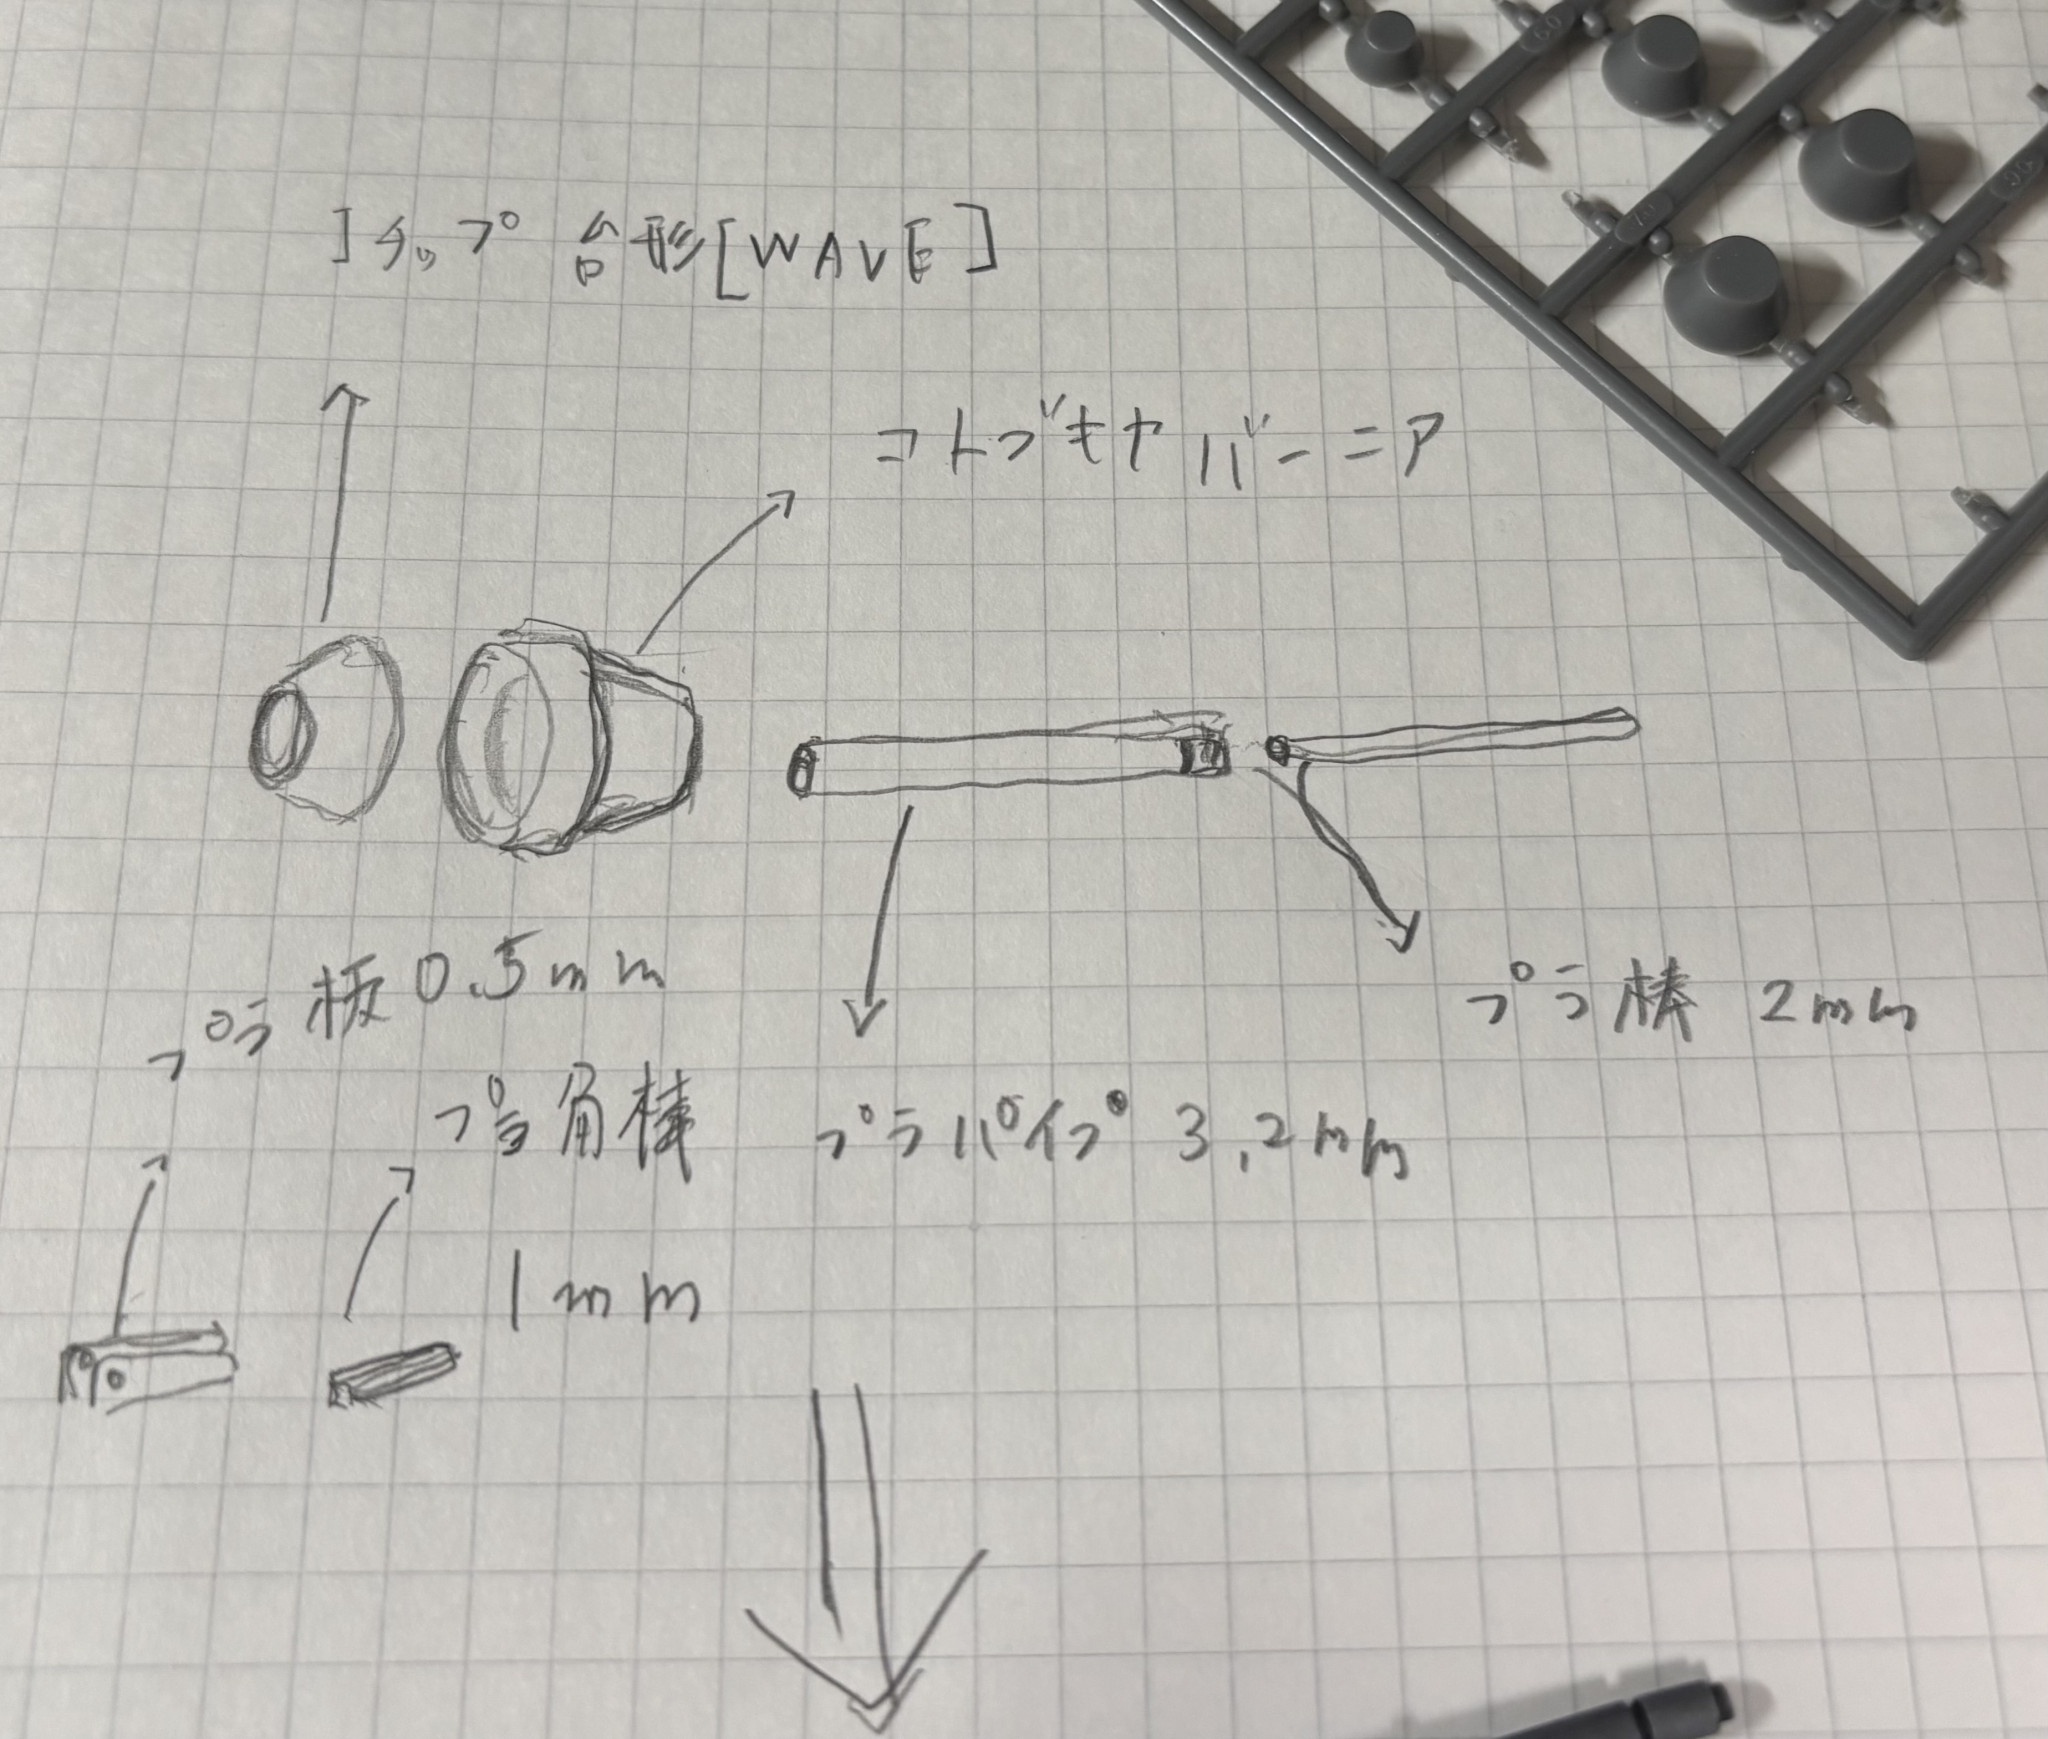 Iチップ 台形[WAVE]
コトブキヤ バーニア
プラ板 0.5mm
プラ棒 2mm
プラ角棒
プラパイプ 3.2mm
1mm